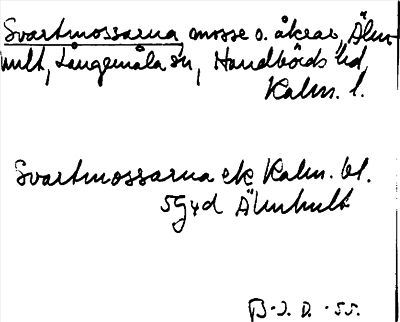 Svartmossarna mosse o. åkrar, Älm-
hult, Långemåla sn, Handbörds hd,
Kalm. l.
Svartmossarna ek Kalm. bl.
5g4d Älmhult
B.J.D. -55.